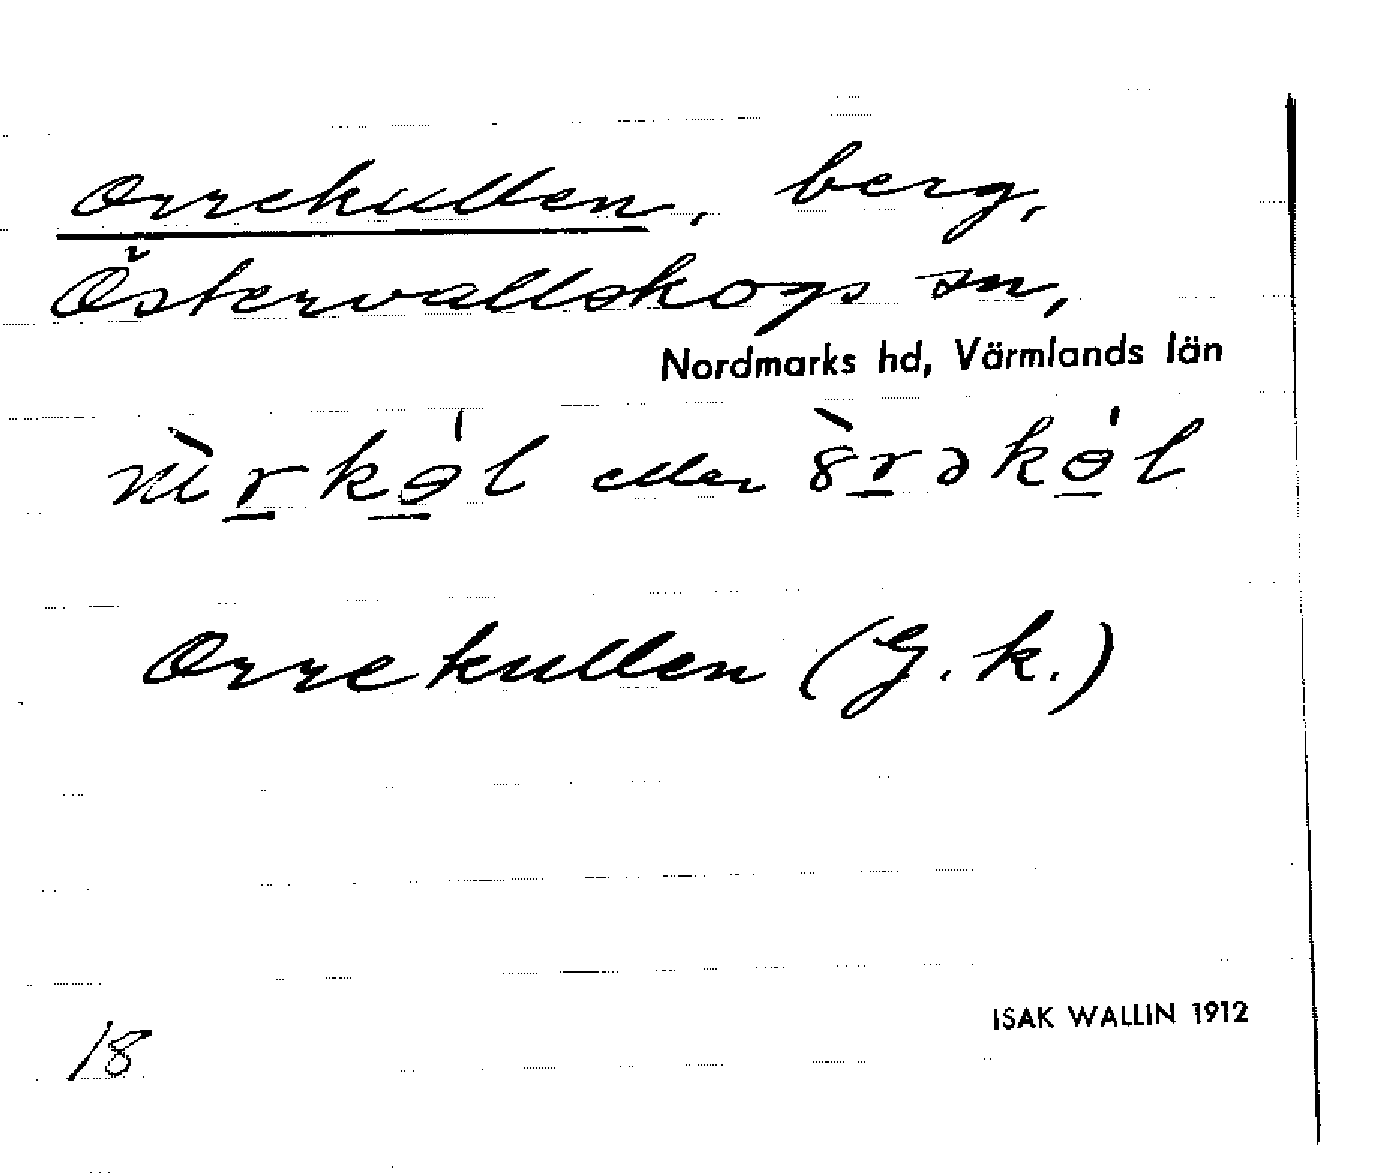 Orrekullen, berg,
Östervallskogs sn,
Nordmarks hd, Värmlands län
eller
Orrekullen (G. k.)
ISAK WALLIN 1912
18